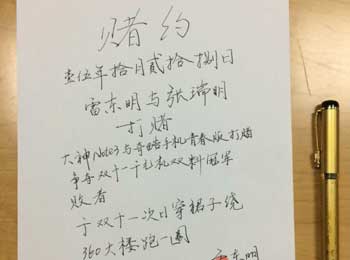 赌约
壹伍年拾月贰拾捌日
雷东明与张瑞明
打赌
大神Note3与奇酷手机青春版打赌
争夺双十一千元机双料冠军
败者
于双十一次日穿裙子绕
360大楼跑一圈
东明